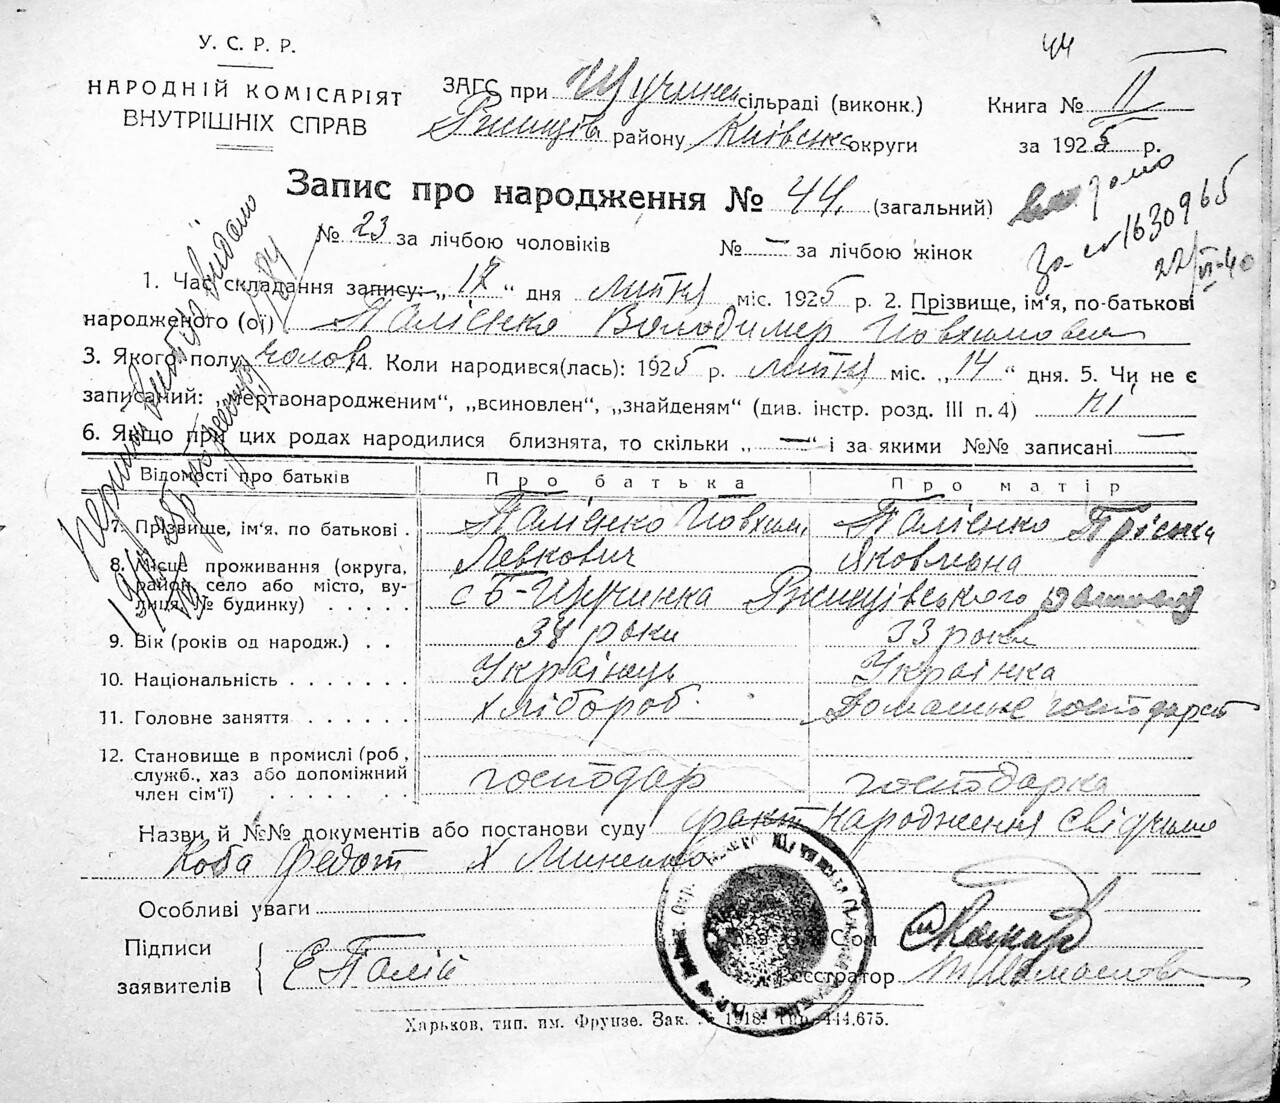 44
У. С. Р. Р.
НАРОДНІЙ КОМІСАРІЯТ
ВНУТРІШНІХ СПРАВ
ЗАГС при Щучинськ сільраді (виконк.)
Ржищів району Київська округи
Книга № II
за 1925 р.
Запис про народження № 44. (загальний)
видано
за № 1630965
22/VI-40
№ 23 за лічбою чоловіків № — за лічбою жінок
1. Час складання запису: „ 17 “ дня липня міс. 1925 р. 2. Прізвище, ім'я, по-батькові
народженого (ої) Палієнко Володимер Йовхимович
3. Якого полу чолов 4. Коли народився(лась): 1925 р. липня міс. „ 14 “ дня. 5. Чи не є
записаний: „мертвонародженим“, „всиновлен“, „знайденям“ (див. інстр. розд. III п. 4) ні
6. Якщо при цих родах народилися близнята, то скільки „ — “ і за якими №№ записані —
Відомості про батьків Про батька Про матір
7. Прізвище, ім'я, по батькові . Палієнко Йовхим Палієнко Пріська
Левкович Яковлівна
8. Місце проживання (округа,
район, село або місто, ву-
лиця, № будинку) . . . . . с Б-Щучинка Ржищівського району
9. Вік (років од народж.) . . 38 роки 33 роки
10. Національність . . . . . . . Українець Українка
11. Головне заняття . . . . . . хлібороб. Домашнє господарст
12. Становище в промислі (роб.,
служб., хаз або допоміжний
член сім'ї) . . . . . . . . господар господарка
Назви й №№ документів або постанови суду факт народження свідчили
Коба Федот Х Миненко
Особливі уваги
Підписи
заявителів
Е Палій
Реєстратор
Харьков, тип. им. Фрунзе. Зак. 1918. Тир. 444.675.